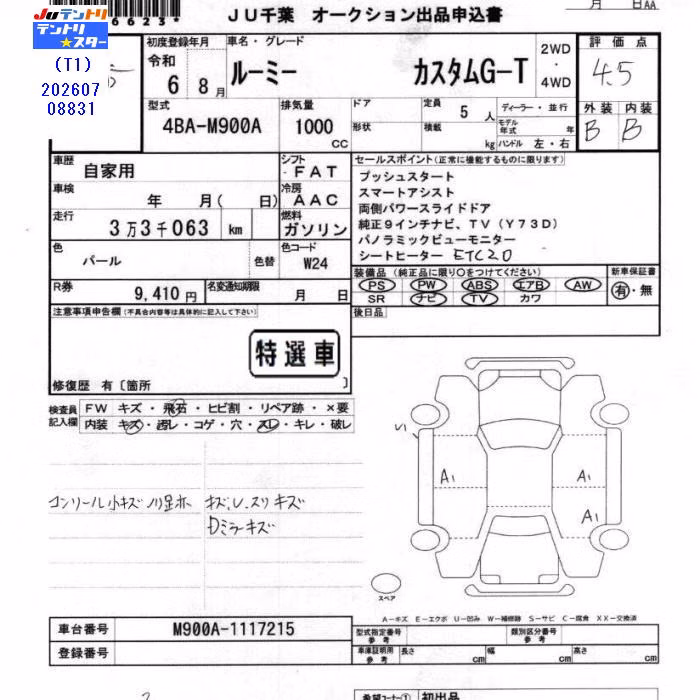 6623*
月 日AA
JU千葉 オークション出品申込書
JUテントリ
テントリ★スター
(T1)
202607
08831
初度登録年月
令和
6年 8月
車名・グレード
ルーミー カスタムG-T
2WD
・
4WD
評価点
4.5
外装 内装
B B
型式
4BA-M900A
排気量
1000
CC
ドア
形状
定員
5 人
積載
kg
ディーラー・並行
モデル年式 年
ハンドル 左・右
車歴
自家用
シフト
FAT
車検
年 月( 日)
冷房
AAC
走行
3万3千063 km
燃料
ガソリン
色
パール 色替
色コード
W24
R券
9,410円
名変通知期限
月 日
セールスポイント(正常に機能するものに限ります)
プッシュスタート
スマートアシスト
両側パワースライドドア
純正9インチナビ、TV(Y73D)
パノラミックビューモニター
シートヒーター ETC2.0
装備品(純正品に限り○をつけてください)
PS PW ABS エアB AW
SR ナビ TV カワ
新車保証書
有・無
後日品
注意事項申告欄(不具合内容等は具体的に記入して下さい)
特選車
修復歴 有〔箇所 〕
検査員
記入欄
FW キズ・飛石・ヒビ割・リペア跡・×要
内装 キズ・汚レ・コゲ・穴・スレ・キレ・破レ
コンソール小キズ
キズ、U、スリキズ
Dミラーキズ
A1
A1
A1
スペア
A-キズ E-エクボ U-凹み W-補修跡 S-サビ C-腐食 XX-交換済
車台番号 M900A-1117215
登録番号
型式指定番号
参考
類別区分番号
参考
車庫証明用
参考
長さ cm 幅 cm 高さ cm
希望コーナー① 初出品